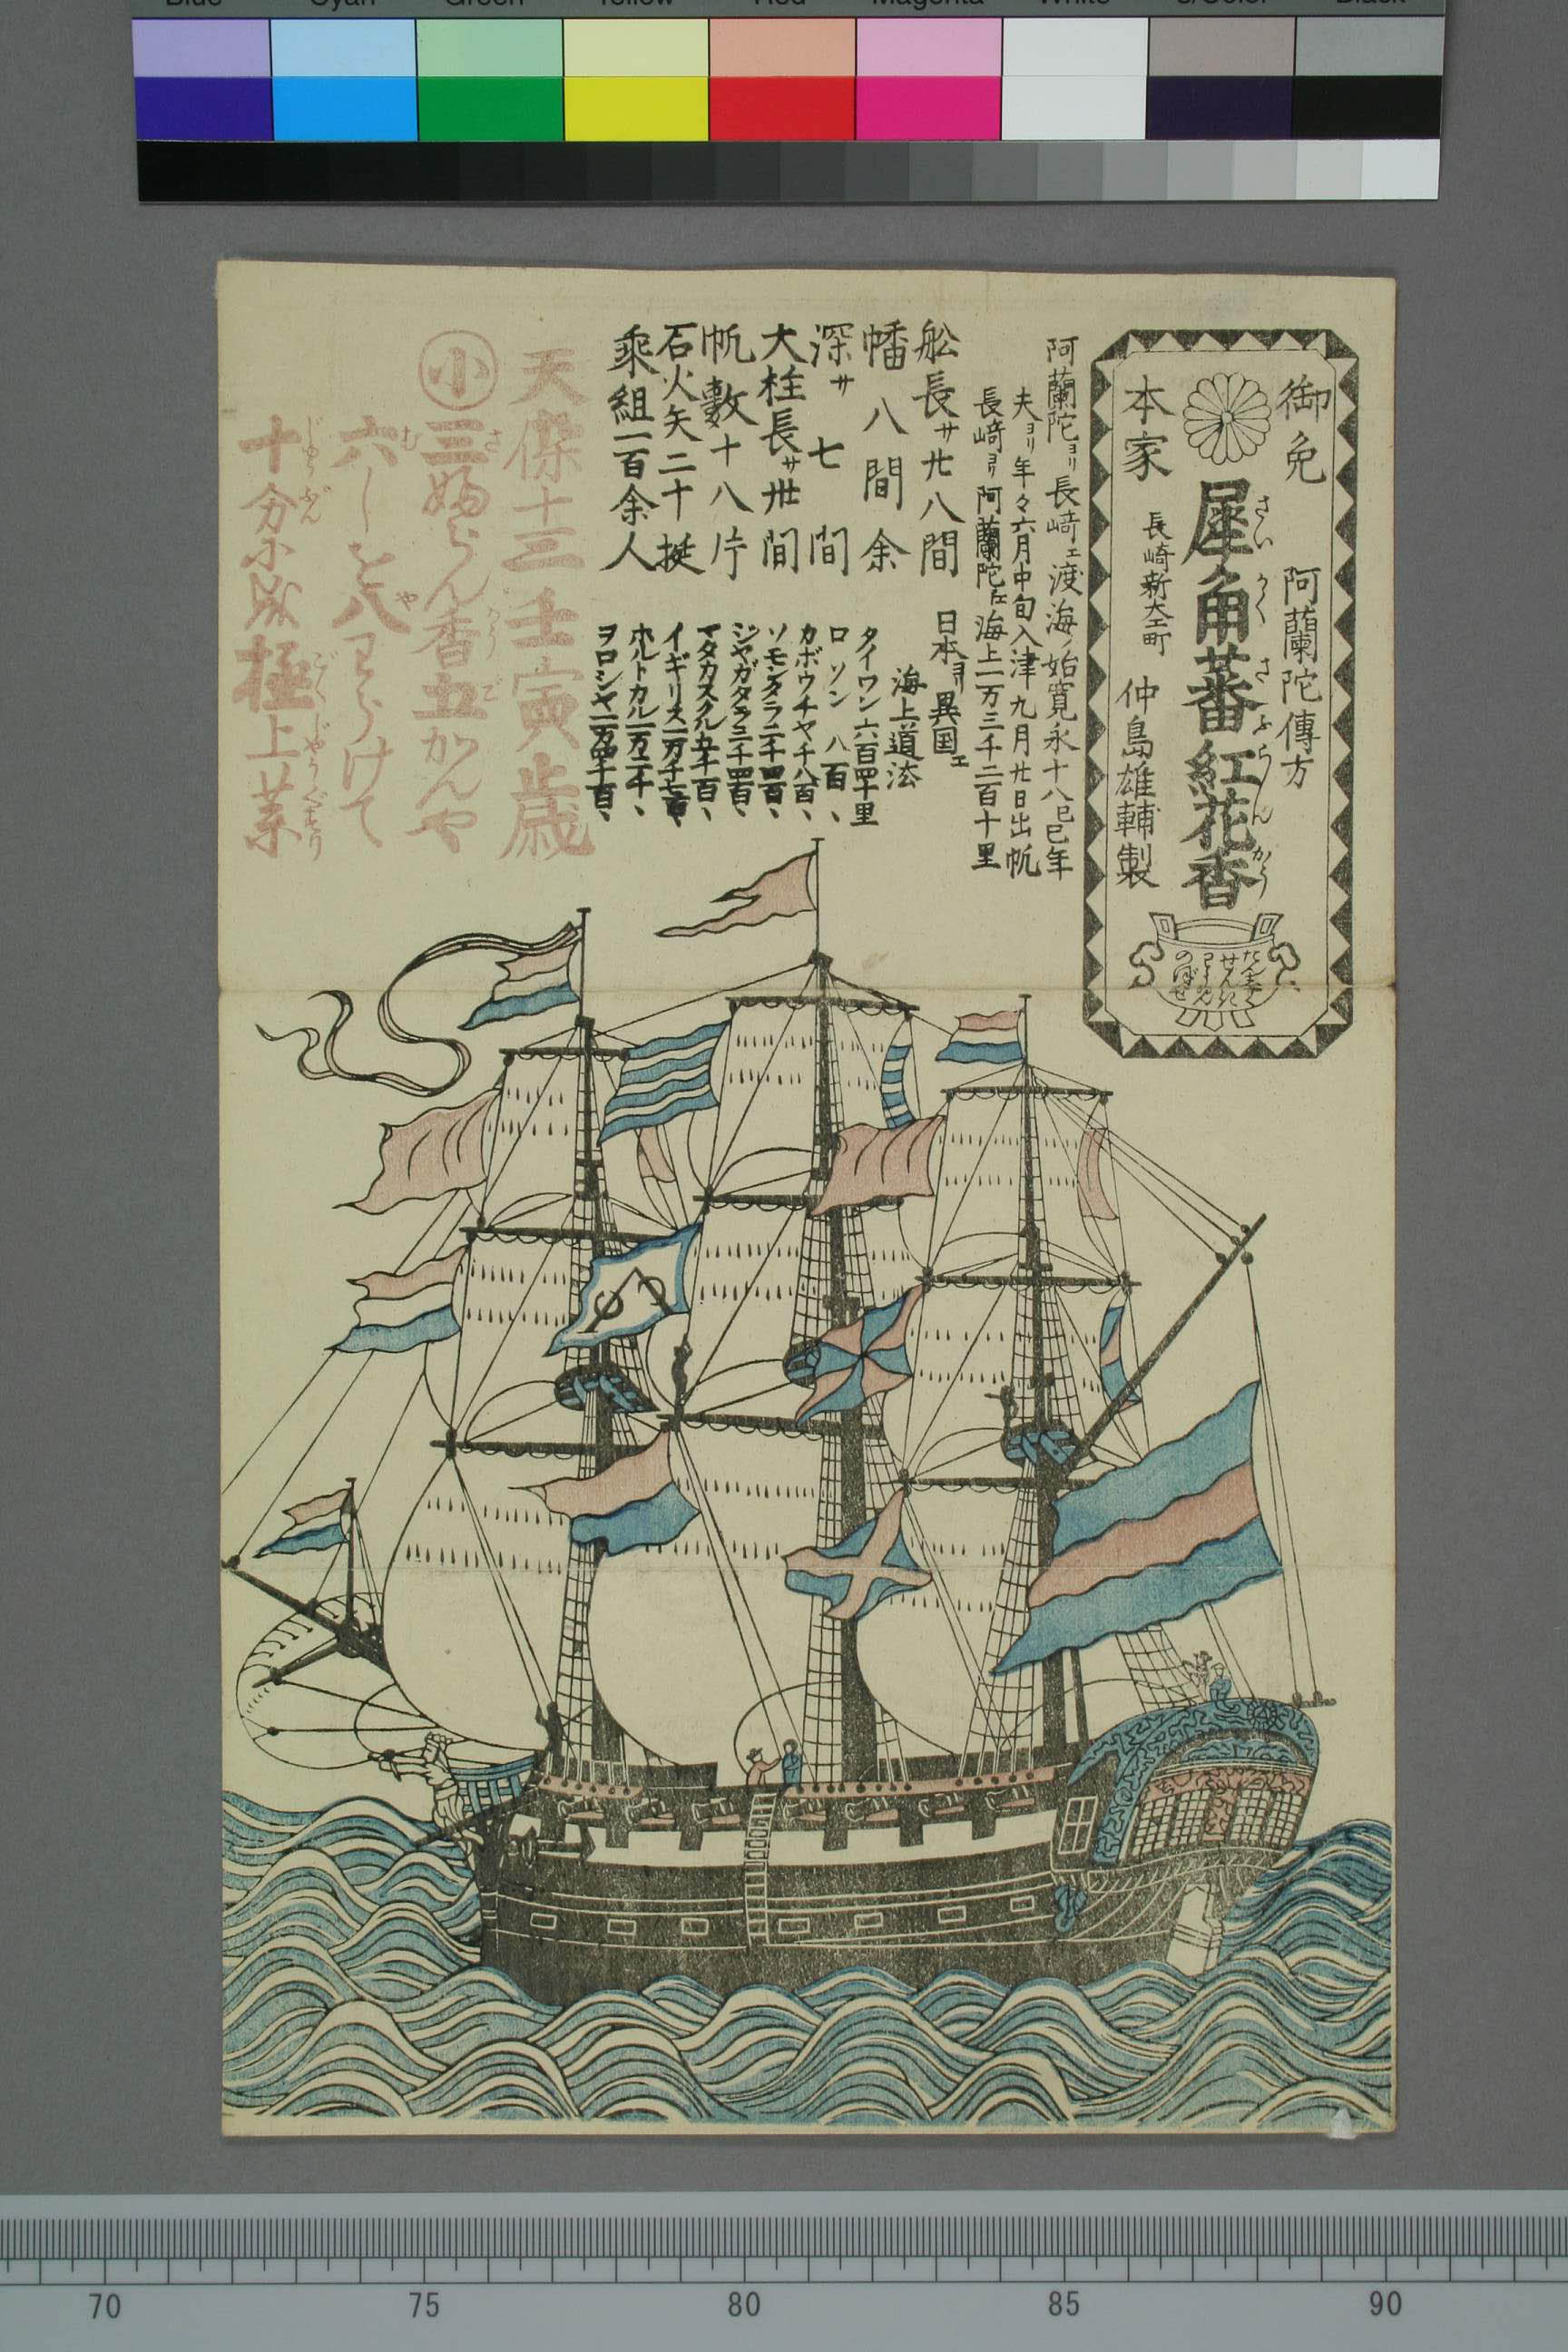 Blue Cyan Green Yellow Red Magenta White 3/Color Black
御免 阿蘭陀傳方
犀角蕃紅花香
さい かく さ ふ らん かう
本家 長崎新大工町 仲島雄輔製
たん
せき
のぼせ
阿蘭陀ヨリ長崎エ渡海ノ始寛永十八巳年
夫ヨリ年々六月中旬入津九月廿日出帆
長崎ヨリ阿蘭陀エ海上一万三千二百十里
舩長サ廿八間
幡八間余
深サ七間
大柱長サ卅間
帆數十八片
石火矢二十挺
乘組一百余人
日本ヨリ異国エ
海上道法
タイワン六百四十里
ロソン八百、
カボウチヤ千八百、
ソモンタラ二千四百、
ジヤガタラ三千四百、
マタカスクル五千百、
イギリス一万千七百、
ホルトカル一万二千、
ヲロシヤ一万四千百、
天保十三壬寅歳
小 三婦らん香五かんや
さ かう ご
六しを八わらけて
む や
十分小成極上薬
じうぶん ごくじやうぐすり
70 75 80 85 90